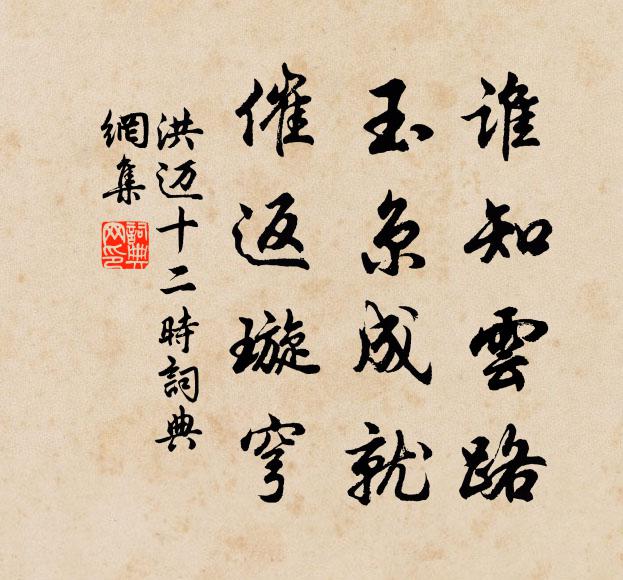 谁知雲路
玉京成就
催返璇穹
洪迈十二時詞典
網集
詞典
网印